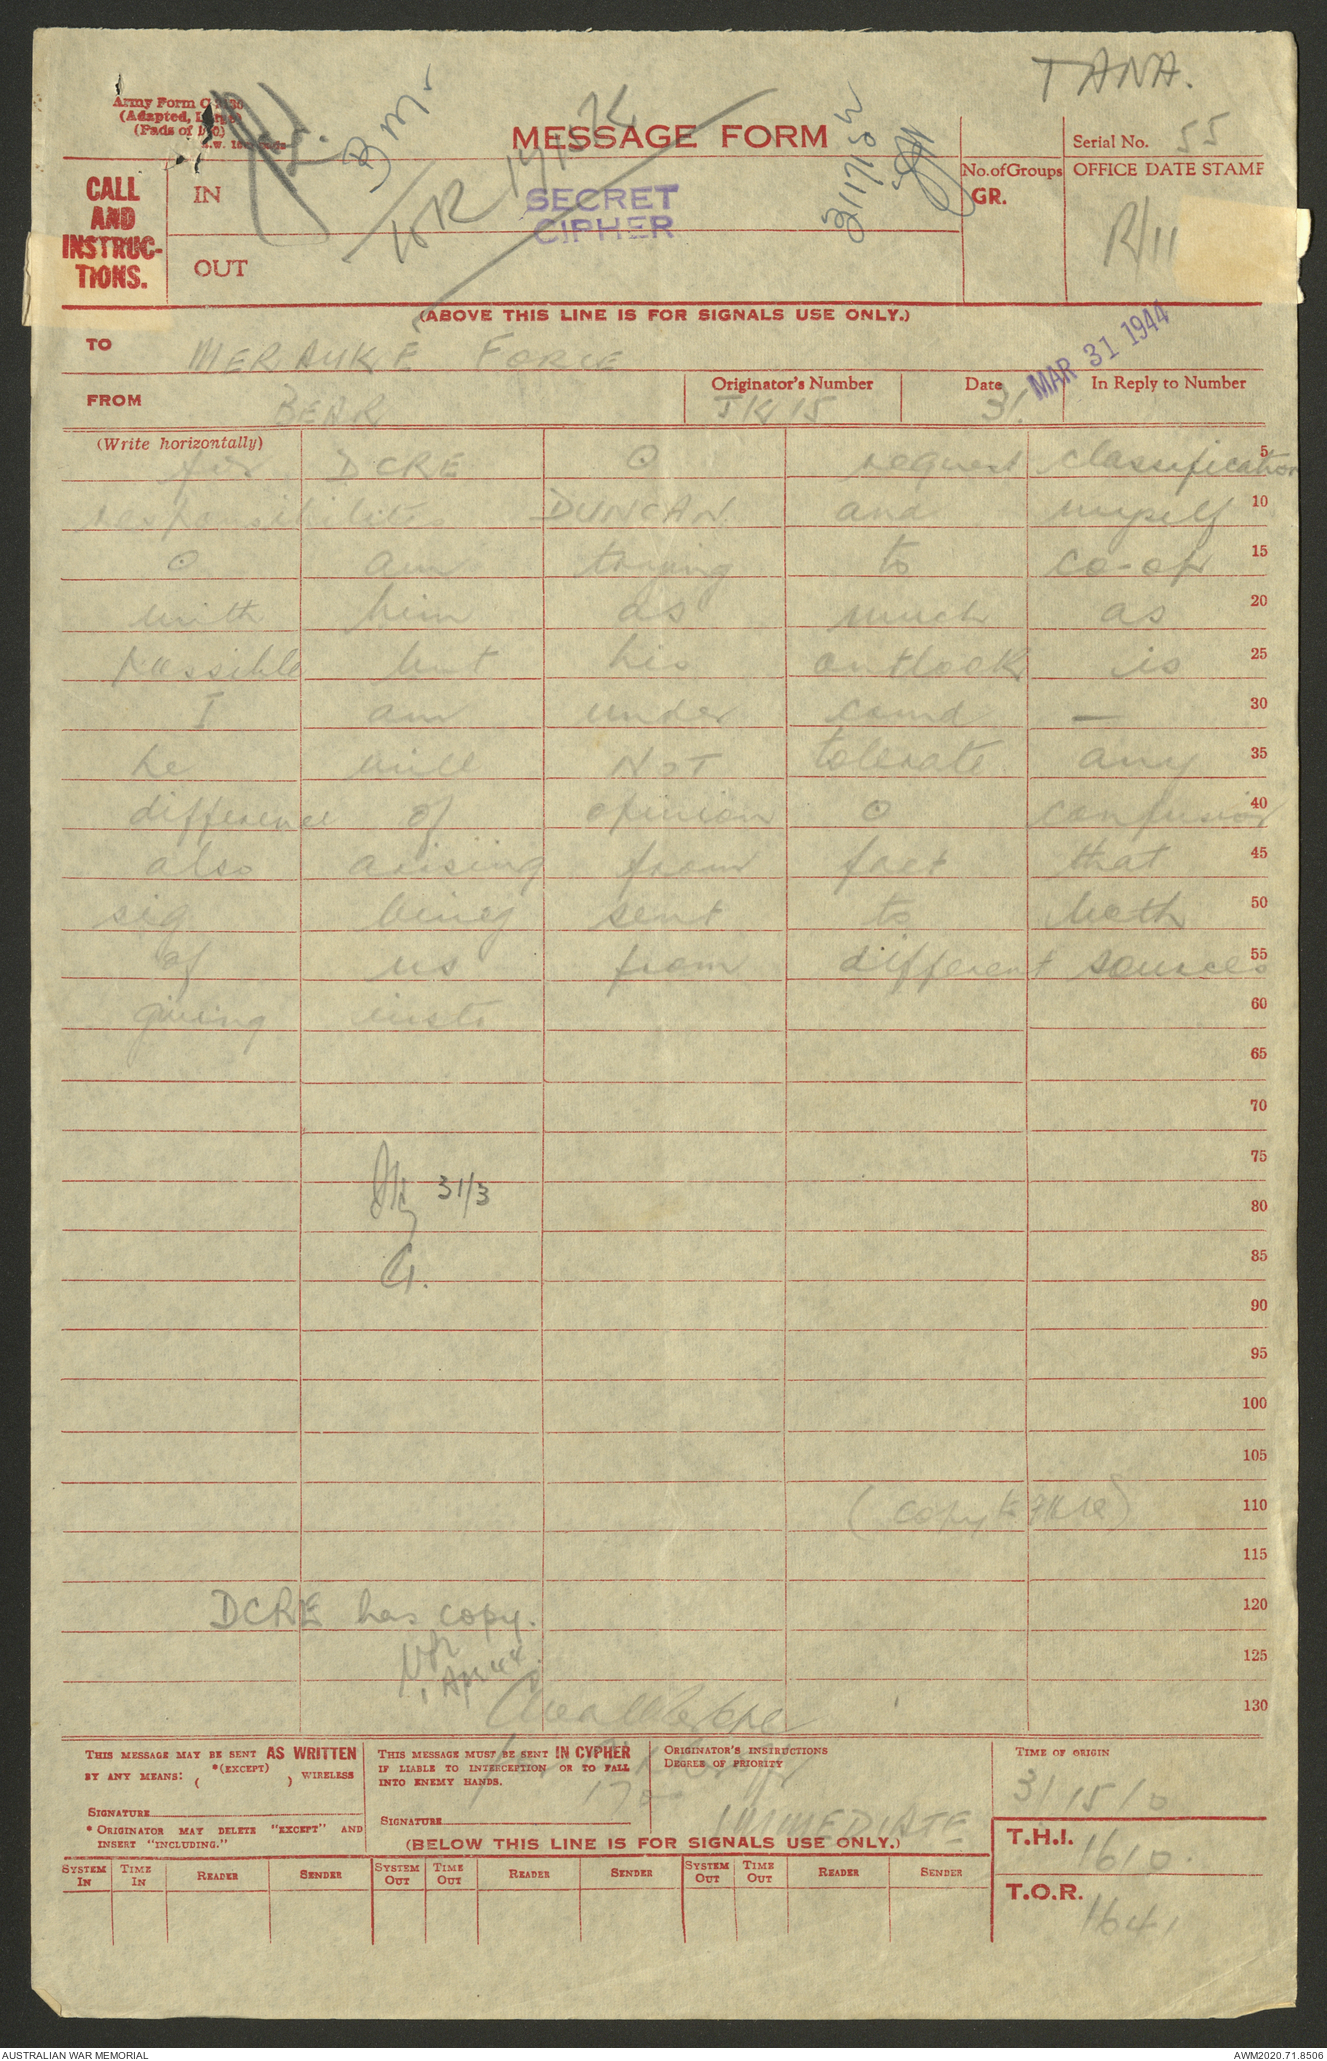 TANA.
Army Form C 2136
(Adapted, Large)
(Pads of 100)
MESSAGE FORM
Serial No. 55
CALL
AND
INSTRUC-
TIONS.
IN
OUT
SECRET
CIPHER
No. of Groups
GR.
OFFICE DATE STAMP
R/11
(ABOVE THIS LINE IS FOR SIGNALS USE ONLY.)
TO MERAUKE FORCE
FROM BEAR
Originator's Number JK15
Date 31.
MAR 31 1944
In Reply to Number
(Write horizontally)
for DCRE O request classification 5
responsibilities DUNCAN and myself 10
O am trying to co-op 15
with him as much as 20
possible but his outlook is 25
I am under comd — 30
he will NOT tolerate any 35
difference of opinion O confusion 40
also arising from fact that 45
sig being sent to both 50
of us from different sources 55
giving insts 60
65
70
75
31/3
80
85
90
95
100
105
(copy to) 110
115
DCRE has copy. 120
Apr 44 125
130
THIS MESSAGE MAY BE SENT AS WRITTEN
BY ANY MEANS: *(EXCEPT) ( ) WIRELESS
SIGNATURE
* ORIGINATOR MAY DELETE "EXCEPT" AND
INSERT "INCLUDING."
THIS MESSAGE MUST BE SENT IN CYPHER
IF LIABLE TO INTERCEPTION OR TO FALL
INTO ENEMY HANDS.
SIGNATURE
ORIGINATOR'S INSTRUCTIONS
DEGREE OF PRIORITY
IMMEDIATE
TIME OF ORIGIN
31 1510
(BELOW THIS LINE IS FOR SIGNALS USE ONLY.)
T.H.I. 1610.
T.O.R. 1641
SYSTEM IN TIME IN READER SENDER SYSTEM OUT TIME OUT READER SENDER SYSTEM OUT TIME OUT READER SENDER
AUSTRALIAN WAR MEMORIAL
AWM2020.71.8506